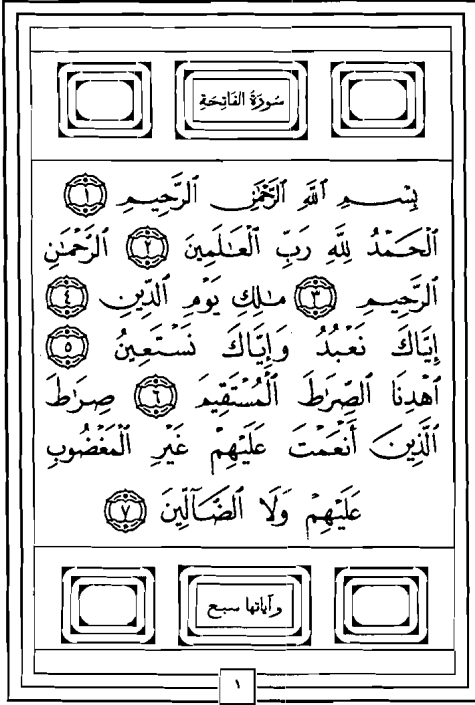 سُورَةُ الفَاتِحَةِ
بِسْمِ اللَّهِ الرَّحْمَٰنِ الرَّحِيمِ ١
الْحَمْدُ لِلَّهِ رَبِّ الْعَالَمِينَ ٢ الرَّحْمَٰنِ
الرَّحِيمِ ٣ مَالِكِ يَوْمِ الدِّينِ ٤
إِيَّاكَ نَعْبُدُ وَإِيَّاكَ نَسْتَعِينُ ٥
اهْدِنَا الصِّرَاطَ الْمُسْتَقِيمَ ٦ صِرَاطَ
الَّذِينَ أَنْعَمْتَ عَلَيْهِمْ غَيْرِ الْمَغْضُوبِ
عَلَيْهِمْ وَلَا الضَّآلِّينَ ٧
وآياتها سبع
١